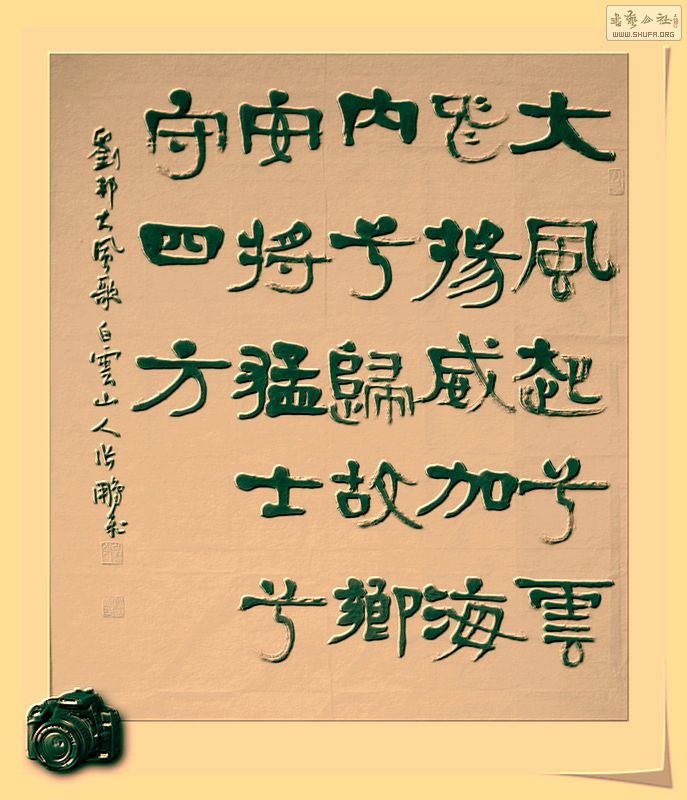 大風起兮雲
飛揚威加海
内兮歸故鄉
安将猛士兮
守四方
劉邦大風歌 白雲山人张鵬
書藝公社
WWW.SHUFA.ORG